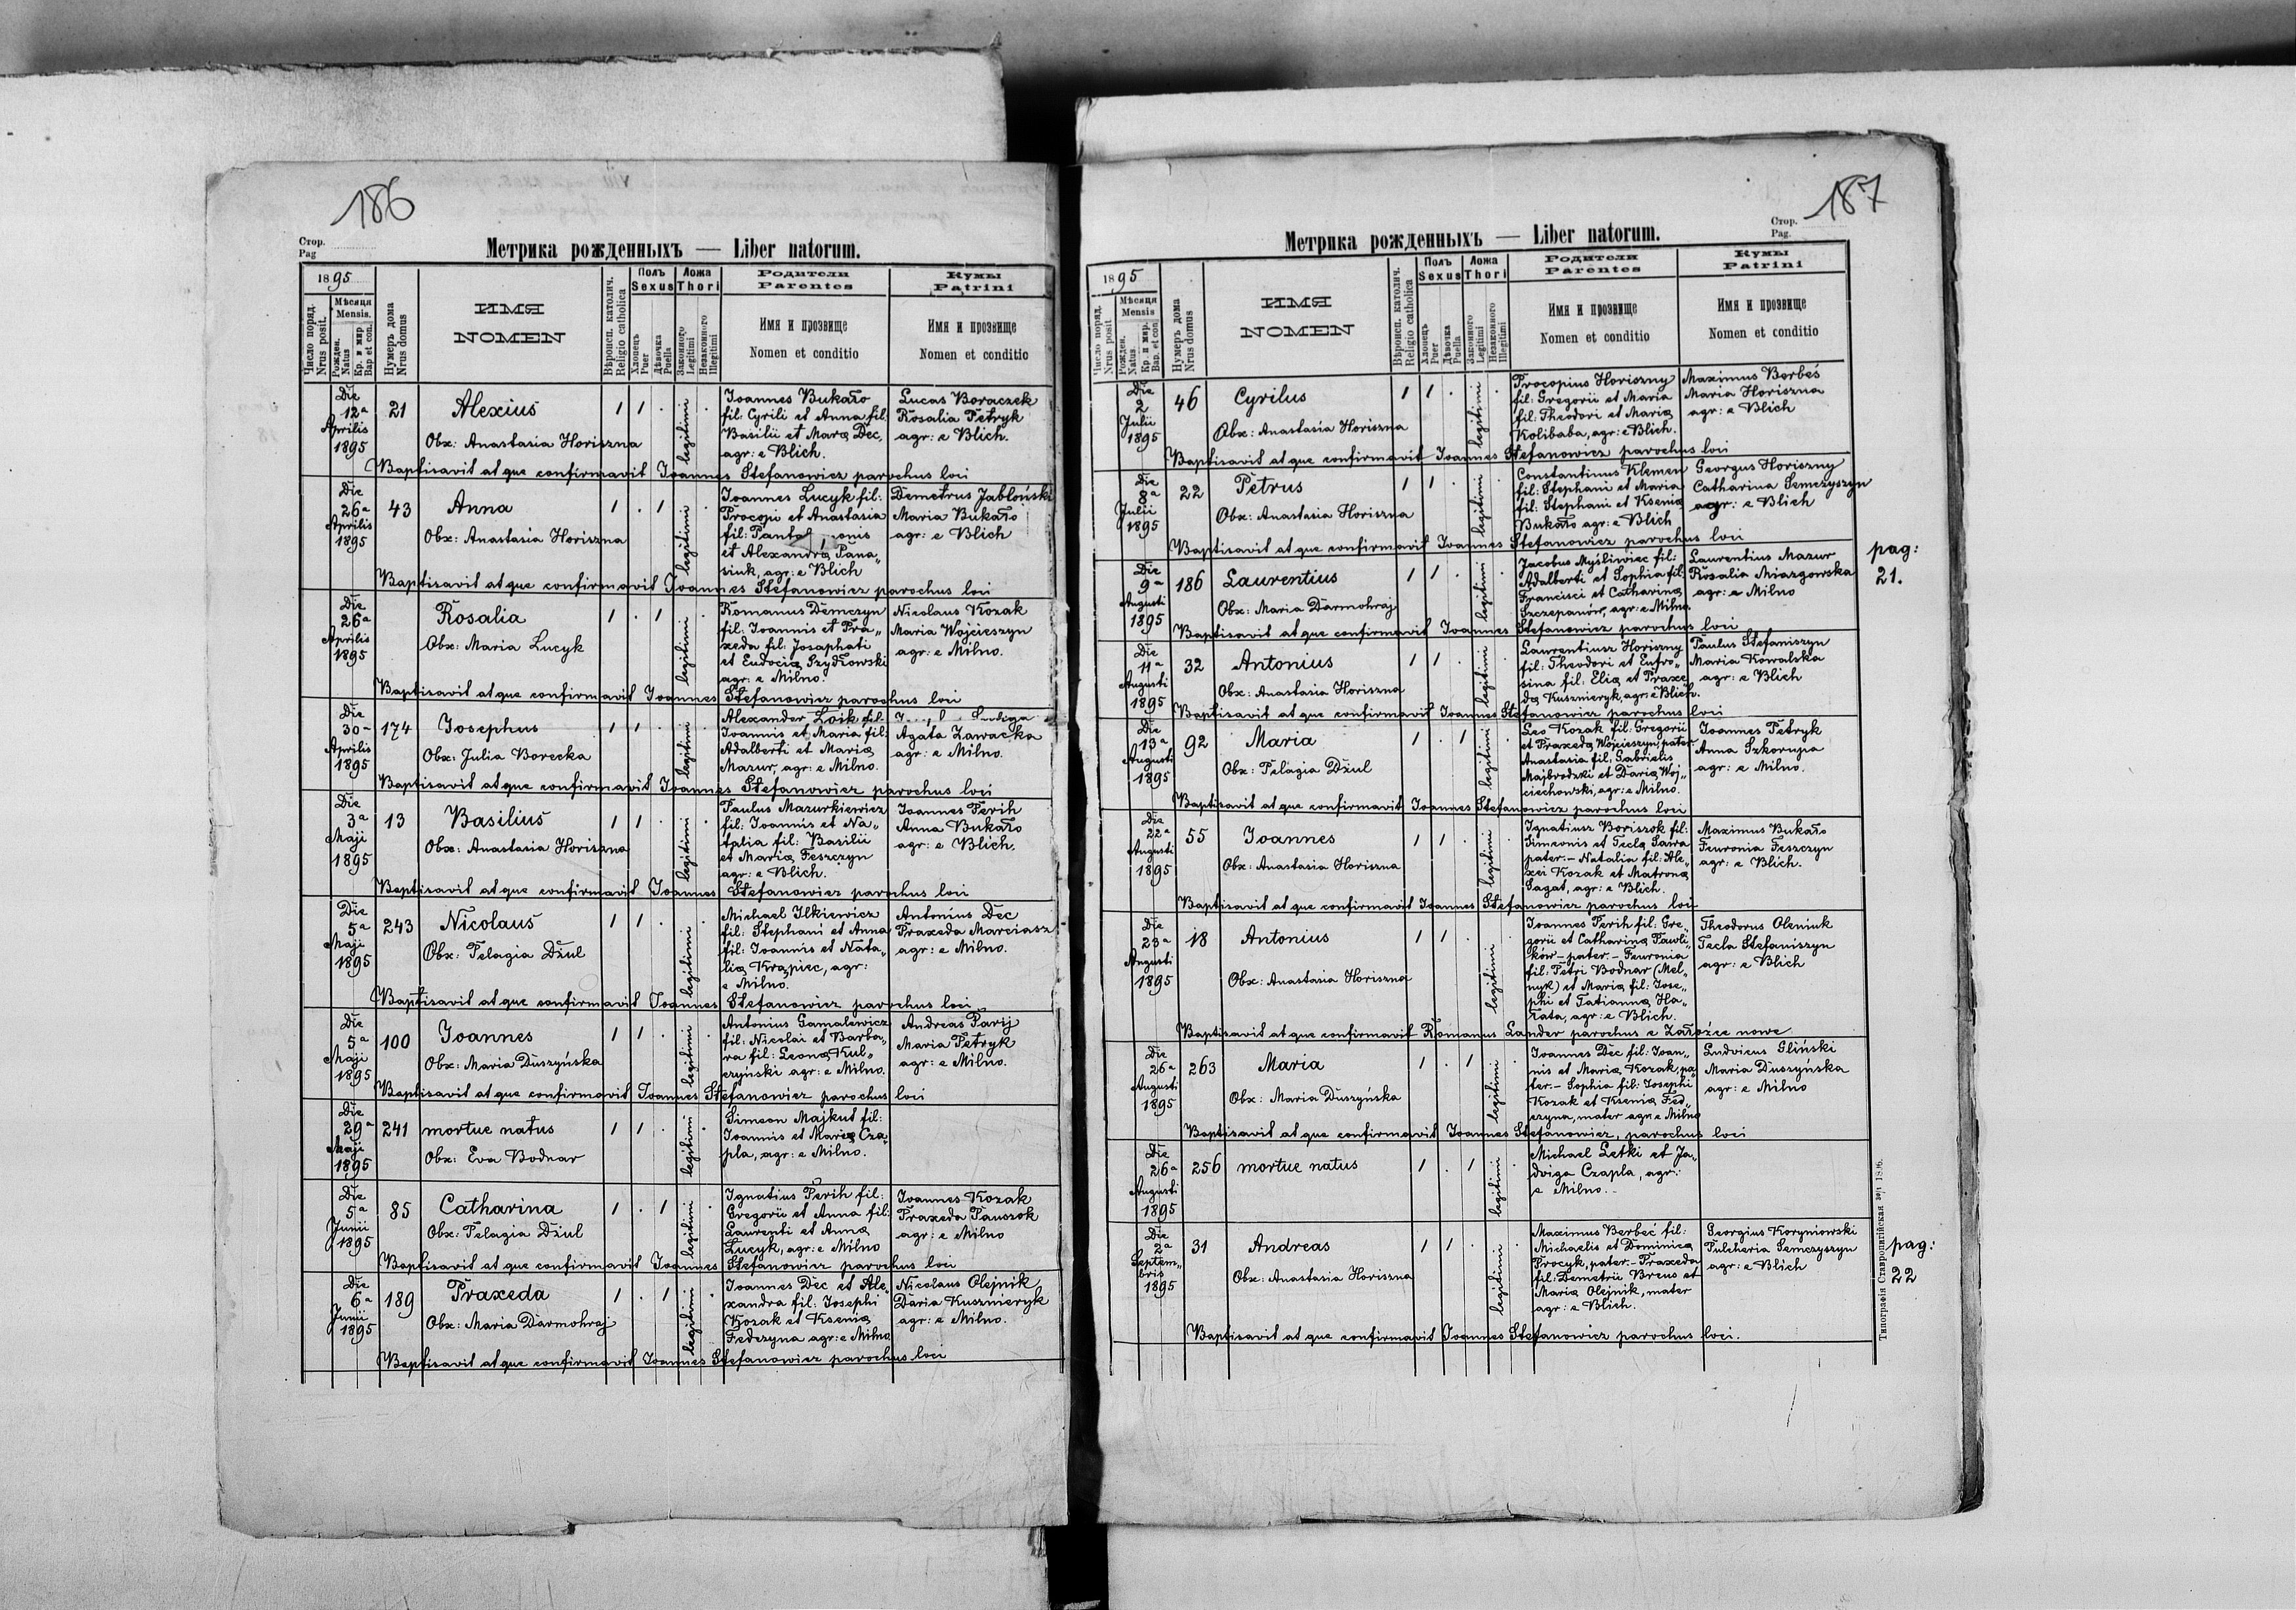 186
Стор.
Pag
Метрика рожденныхъ — Liber natorum.
1895
Число поряд.
Nrus posit.
Мѣсяця
Mensis.
Рожден.
Natus
Кр. и мир
Bap. et con.
Нумеръ дома
Nrus domus
ИМЯ
NOMEN
Вѣроисп. католич.
Religio catholica
Полъ
Sexus
Хлопецъ
Puer
Дѣвочка
Puella
Ложа
Thori
Законного
Legitimi
Незаконного
Illegitimi
Родители
Parentes
Имя и прозвище
Nomen et conditio
Кумы
Patrini
Имя и прозвище
Nomen et conditio
Die
12a
Aprilis
1895
21
Alexius
Obx: Anastasia Horiszna
1 1 .
legitimi
Joannes Bukało
fil: Cyrili et Anna fil:
Basilii et Mara Dec,
agr: e Blich.
Lucas Boraczek
Rosalia Petryk
agr: e Blich.
Baptisavit atque confirmavit Joannes Stefanowicz parochus loci
Die
26a
Aprilis
1895
43
Anna
Obx: Anastasia Horiszna
1 . 1
legitimi
Joannes Lucyk fil:
Procopi et Anastasia
fil:
et Alexandra Pana„
siuk, agr: e Blich
Demetrus Jabłoński
Maria Bukało
agr: e Blich
Baptisavit atque confirmavit Joannes Stefanowicz parochus loci
Die
26a
Aprilis
1895
Rosalia
Obx: Maria Lucyk
1 . 1
legitimi
Romanus Demczyn
fil: Joannis et Pra„
xeda fil: Josaphati
et Eudocia Szydłowski
agr: e Milno.
Nicolaus Kozak
Maria Wojcieszyn
agr: e Milno.
Baptisavit atque confirmavit Joannes Stefanowicz parochus loci
Die
30a
Aprilis
1895
174
Josephus
Obx: Julia Borecka
1 1 .
legitimi
Alexander Loik fil:
Joannis et Maria fil:
Adalberti et Maria
Mazur, agr: e Milno.
Agata Zawacka
agr: e Milno.
Baptisavit atque confirmavit Joannes Stefanowicz parochus loci
Die
3a
Maji
1895
13
Basilius
Obx: Anastasia Horiszna
1 1 .
legitimi
Paulus Mazurkiewicz
fil: Joannis et Na„
talia fil: Basilii
et Maria Feszczyn
agr: e Blich.
Joannes Perih
Anna Bukało
agr: e Blich.
Baptisavit atque confirmavit Joannes Stefanowicz parochus loci
Die
5a
Maji
1895
243
Nicolaus
Obx: Pelagia Dżul
1 1 .
legitimi
Michael Ilkiewicz
fil: Stephani et Anna
fil: Joannis et Nata„
lia Krąpiec, agr:
e Milno.
Antonius Dec
Praxeda Marciasz
agr: e Milno.
Baptisavit atque confirmavit Joannes Stefanowicz parochus loci
Die
5a
Maji
1895
100
Joannes
Obx: Maria Duszyńska
1 1 .
legitimi
Antonius Gamalewicz
fil: Nicolai et Barba„
ra fil: Leona Kul„
czyński agr: e Milno.
Andreas Parij
Maria Petryk
agr: e Milno.
Baptisavit atque confirmavit Joannes Stefanowicz parochus loci
Die
29a
Maji
1895
241
mortue natus
Obx: Eva Bodnar
1 1 .
legitimi
Simeon Majkut fil:
Joannis et Maria Cza„
pla, agr: e Milno.
Die
5a
Junii
1895
85
Catharina
Obx: Pelagia Dżul
1 . 1
legitimi
Ignatius Perih fil:
Gregorii et Anna fil:
Laurenti et Anna
Lucyk, agr: e Milno
Joannes Kozak
Praxeda Pauszok
agr: e Milno
Baptisavit atque confirmavit Joannes Stefanowicz parochus loci
Die
6a
Junii
1895
189
Praxeda
Obx: Maria Darmohraj
1 . 1
legitimi
Joannes Dec et Ale„
xandra fil: Josephi
Kozak et Ksenia
Fedczyna agr: e Milno
Nicolaus Olejnik
Daria Kusznieryk
agr: e Milno.
Baptisavit atque confirmavit Joannes Stefanowicz parochus loci
187
Стор.
Pag.
Метрика рожденныхъ — Liber natorum.
1895
Число поряд.
Nrus posit
Мѣсяця
Mensis
Рожден.
Natus
Кр. и мир.
Bap. et con
Нумеръ дома
Nrus domus
ИМЯ
NOMEN
Вѣроисп. католич.
Religio catholica
Полъ
Sexus
Хлопецъ
Puer
Дѣвочка
Puella
Ложа
Thori
Законного
Legitimi
Незаконного
Illegitimi
Родители
Parentes
Имя и прозвище
Nomen et conditio
Кумы
Patrini
Имя и прозвище
Nomen et conditio
Die
2
Julii
1895
46
Cyrilus
Obx: Anastasia Horiszna
1 1 .
legitimi
Procopius Horiszny
fil: Gregorii et Maria
fil: Theodori et Maria
Kolibaba, agr: e Blich.
Maximus Berbeć
Maria Horiszna
agr: e Blich
Baptisavit atque confirmavit Joannes Stefanowicz parochus loci
Die
8a
Julii
1895
22
Petrus
Obx: Anastasia Horiszna
1 1 .
legitimi
Constantinus Klemen
fil: Stephani et Maria
fil: Stephani et Ksenia
Bukało agr: e Blich
Georgus Horiszny
Catharina Semczyszyn
agr: e Blich
Baptisavit atque confirmavit Joannes Stefanowicz parochus loci
Die
9a
Augusti
1895
186
Laurentius
Obx: Maria Darmohraj
1 1 .
legitimi
Jacobus Myśliwiec fil:
Adalberti et Sophia fil:
Francisci et Catharina
Szczepanów, agr: e Milno.
Laurentius Mazur
Rosalia Miazgowska
agr: e Milno
pag:
21.
Baptisavit atque confirmavit Joannes Stefanowicz parochus loci
Die
11a
Augusti
1895
32
Antonius
Obx: Anastasia Horiszna
1 1 .
legitimi
Laurentiusz Horiszny
fil: Theodori et Eufro„
sina fil: Elia et Praxe
da Kusznieryk, agr: e Blich.
Paulus Stefaniszyn
Maria Kowalska
agr: e Blich
Baptisavit atque confirmavit Joannes Stefanowicz parochus loci
Die
13a
Augusti
1895
92
Maria
Obx: Pelagia Dżul
1 . 1
legitimi
Leo Kozak fil: Gregorii
et Praxeda Wojcieszyn, pater
Anastasia fil: Gabrielis
Majbrodzki et Daria Woj„
ciechowski, agr: e Milno.
Joannes Petryk
Anna Szkorupa
agr: e Milno.
Baptisavit atque confirmavit Joannes Stefanowicz parochus loci
Die
22a
Augusti
1895
55
Joannes
Obx: Anastasia Horiszna
1 1 .
legitimi
Ignatiusz Boriszok fil:
Simeonis et Tecla Sawa
pater. – Natalia fil: Ale„
xei Kozak et Matrona
Sagat, agr: e Blich.
Maximus Bukało
Feuronia Feszczyn
agr: e Blich.
Baptisavit atque confirmavit Joannes Stefanowicz parochus loci
Die
23a
Augusti
1895
18
Antonius
Obx: Anastasia Horiszna
1 1 .
legitimi
Joannes Perih fil: Gre„
gorii et Catharina Pawli„
ków – pater. – Feuronia
fil: Petri Bodnar (Mel„
nyk) et Maria fil: Jose„
phi et Tatianna Ha„
łata, agr: e Blich.
Theodorus Oleniuk
Tecla Stefaniszyn
agr: e Blich
Baptisavit atque confirmavit Romanus Lander parochus e Załoźce nowe
Die
26a
Augusti
1895
263
Maria
Obx: Maria Duszyńska
1 . 1
legitimi
Joannes Dec fil: Joan„
nis et Maria Kozak, pa„
ter. – Sophia fil: Josephi
Kozak et Ksenia Fed„
czyna, mater agr: e Milno
Ludvicus Gliński
Maria Duszyńska
agr: e Milno
Baptisavit atque confirmavit Joannes Stefanowicz, parochus loci
Die
26a
Augusti
1895
256
mortue natus
1 . 1
legitimi
Michael Letki et Ja„
dviga Czapla, agr:
e Milno.
Die
2a
Septem„
bris
1895
31
Andreas
Obx: Anastasia Horiszna
1 1 .
legitimi
Maximus Berbeć fil:
Michaelis et Dominica
Procyk, pater. – Praxeda
fil: Demetrii Breus et
Maria Olejnik, mater
agr: e Blich.
Georgius Koryniowski
Pulcheria Semczyszyn
agr: e Blich
pag:
22
Baptisavit atque confirmavit Joannes Stefanowicz parochus loci.
Типографія Ставропигійская